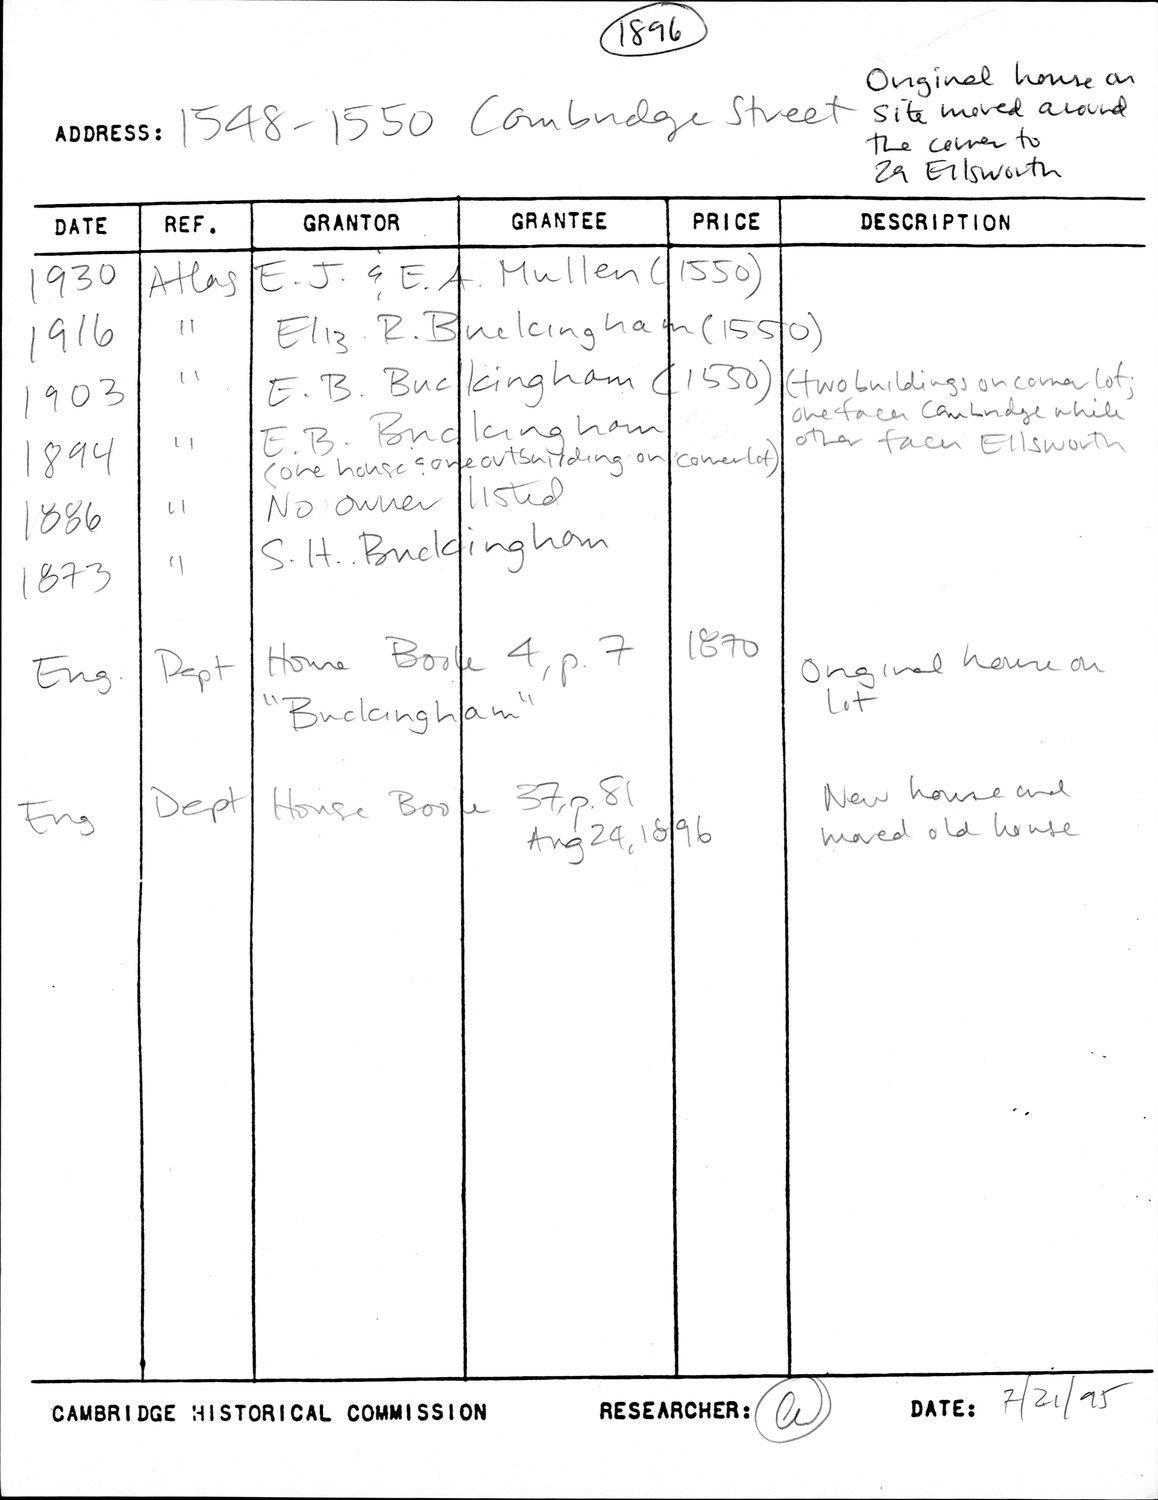 1896
ADDRESS: 1548-1550 Cambridge Street
Original house on
site moved around
the corner to
2a Ellsworth
DATE REF. GRANTOR GRANTEE PRICE DESCRIPTION
1930 Atlas E. J. & E. A. Mullen (1550)
1916 " Eliz. R. Buckingham (1550)
1903 " E. B. Buckingham (1550) (two buildings on corner lot;
one faces Cambridge while
other faces Ellsworth
1894 " E.B. Buckingham
(one house & one outbuilding on corner lot)
1886 " No owner listed
1873 " S. H. Buckingham
Eng. Dept House Book 4, p. 7 1870 Original house on
lot
"Buckingham"
Eng Dept House Book 37, p. 81 New house and
moved old house
Aug 24, 1896
CAMBRIDGE HISTORICAL COMMISSION RESEARCHER: DATE: 7/21/95